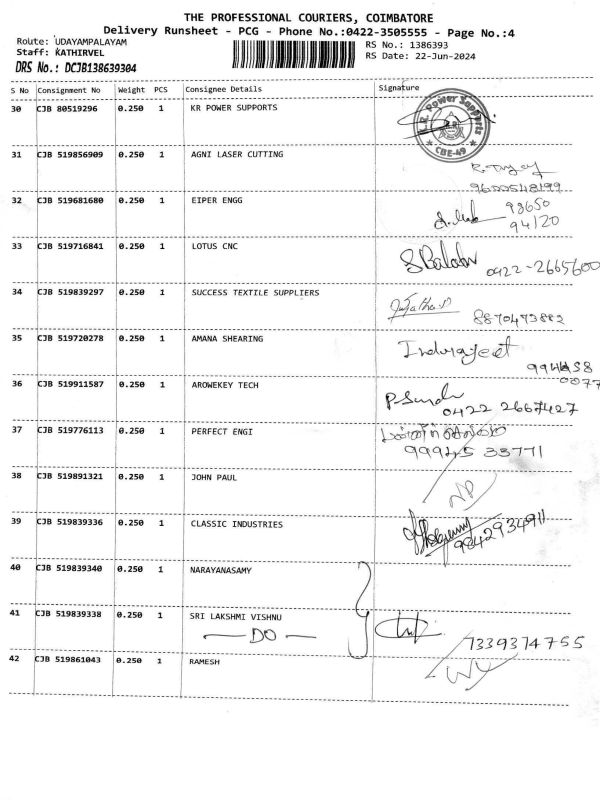 THE PROFESSIONAL COURIERS, COIMBATORE
Delivery Runsheet - PCG - Phone No.:0422-3505555 - Page No.:4
Route: UDAYAMPALAYAM
Staff: KATHIRVEL
DRS No.: DCJB138639304
RS No.: 1386393
RS Date: 22-Jun-2024
S No Consignment No Weight PCS Consignee Details Signature
30 CJB 80519296 0.250 1 KR POWER SUPPORTS
K.R. Power Supports
CBE-49
31 CJB 519856909 0.250 1 AGNI LASER CUTTING
9600548199
32 CJB 519681680 0.250 1 EIPER ENGG
98650
94120
33 CJB 519716841 0.250 1 LOTUS CNC
0422-2665600
34 CJB 519839297 0.250 1 SUCCESS TEXTILE SUPPLIERS
8870473882
35 CJB 519720278 0.250 1 AMANA SHEARING
Indurajeet
36 CJB 519911587 0.250 1 AROWEKEY TECH
0422 2667427
37 CJB 519776113 0.250 1 PERFECT ENGI
99945 33771
38 CJB 519891321 0.250 1 JOHN PAUL
39 CJB 519839336 0.250 1 CLASSIC INDUSTRIES
9842934911
40 CJB 519839340 0.250 1 NARAYANASAMY
41 CJB 519839338 0.250 1 SRI LAKSHMI VISHNU
DO
7339374755
42 CJB 519861043 0.250 1 RAMESH